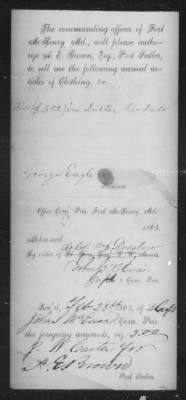 The commanding officer of Fort
McHenry, Md., will please autho-
rize A. E. Brown, Esq., Post Sutler,
to sell me the following named ar-
ticles of Clothing, &c.
in Sutler tickets
George Eagle
Prisoner
Office Com. Pris. Fort McHenry, Md.
1865.
Approved
By order of
Com. Pris.
Rec'd, Feb 28th 1865, of Capt
John S McEwan Com. Pris.
the foregoing amount, viz: 5.00
J. W. Carter for
A. E. Brown
Post Sutler.